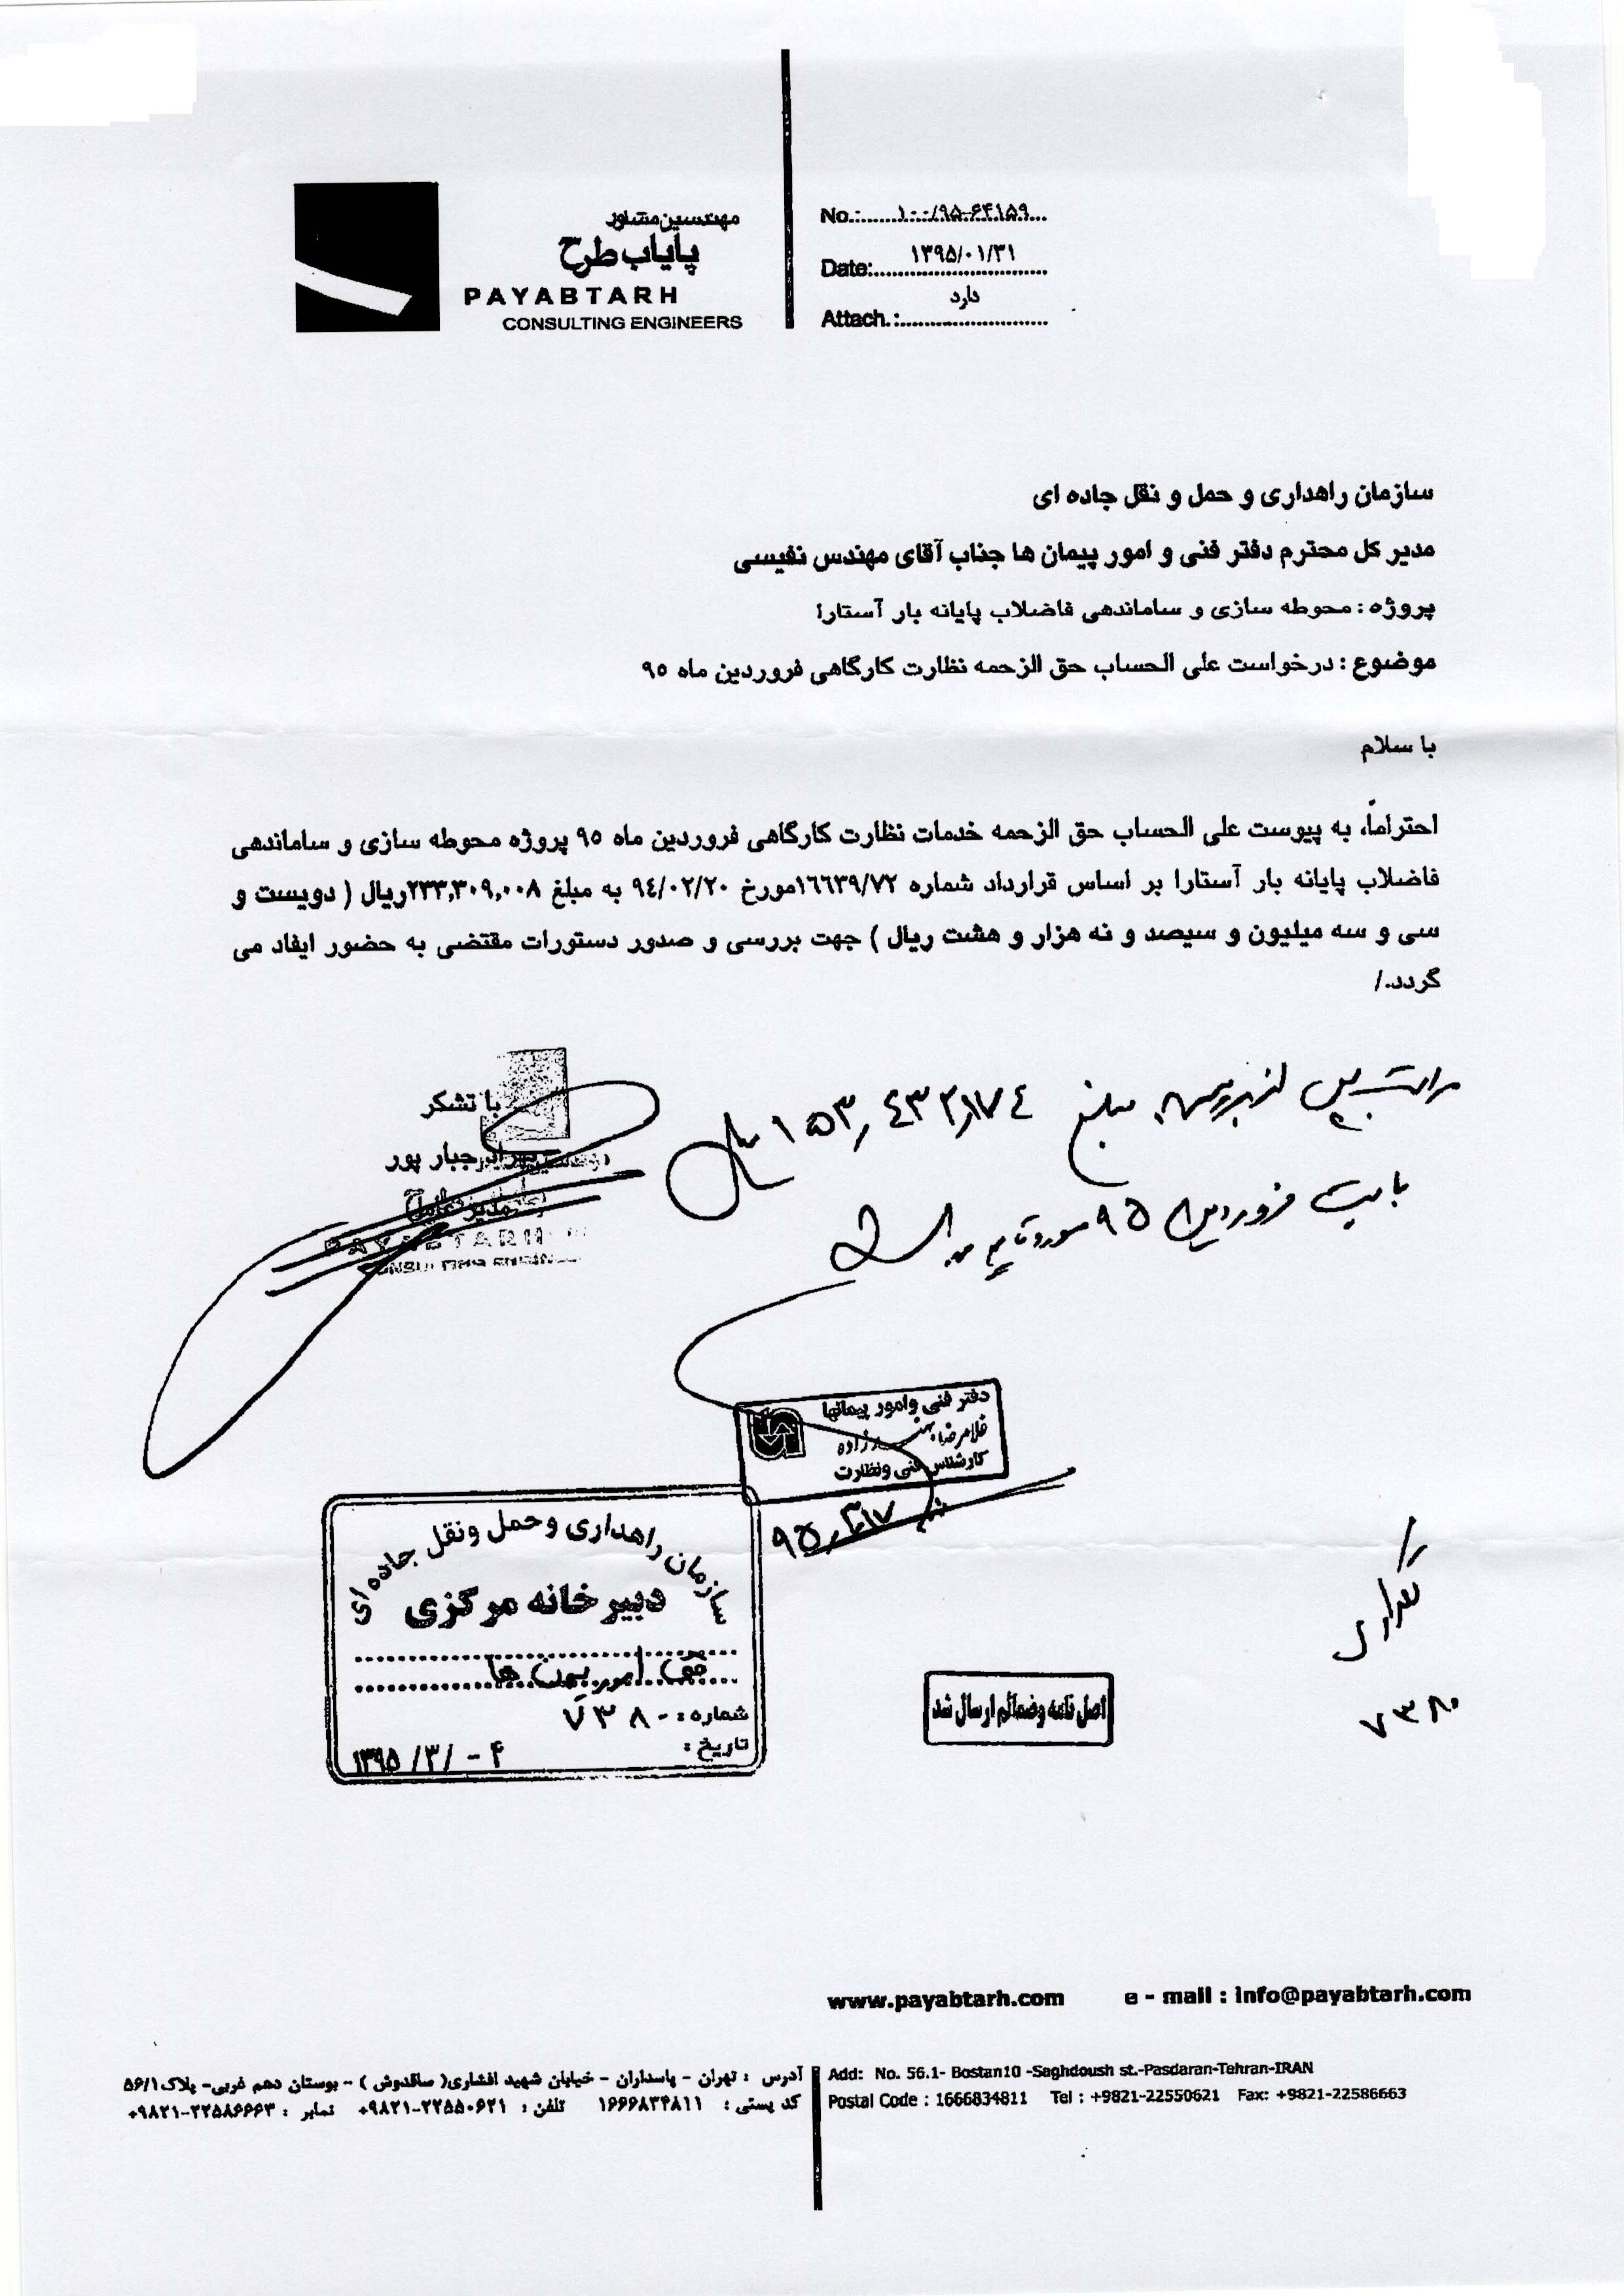 مهندسین مشاور
پایاب طرح
PAYABTARH
CONSULTING ENGINEERS
No.: ۱۰۰/۹۵-۶۴۱۵۹
Date: ۱۳۹۵/۰۱/۳۱
Attach.: دارد
سازمان راهداری و حمل و نقل جاده ای
مدیر کل محترم دفتر فنی و امور پیمان ها جناب آقای مهندس نفیسی
پروژه : محوطه سازی و ساماندهی فاضلاب پایانه بار آستارا
موضوع : درخواست علی الحساب حق الزحمه نظارت کارگاهی فروردین ماه ۹۵
با سلام
احتراماً، به پیوست علی الحساب حق الزحمه خدمات نظارت کارگاهی فروردین ماه ۹۵ پروژه محوطه سازی و ساماندهی
فاضلاب پایانه بار آستارا بر اساس قرارداد شماره ۱۶۶۳۹/۷۲مورخ ۹۴/۰۲/۲۰ به مبلغ ۲۳۳,۳۰۹,۰۰۸ریال ( دویست و
سی و سه میلیون و سیصد و نه هزار و هشت ریال ) جهت بررسی و صدور دستورات مقتضی به حضور ایفاد می
گردد./
با تشکر
جبار پور
مدیر عامل
PAYABTARH
مراتب پس از بررسی مبلغ ۱۵۳,۴۳۲,۱۷۴ ریال
بابت فروردین ۹۵ مورد تایید می باشد
دفتر فنی وامور پیمانها
غلامرضا
کارشناس فنی ونظارت
۹۵,۳,۱۷
سازمان راهداری و حمل ونقل جاده ای
دبیر خانه مرکزی
فنی امور پیمان ها
شماره : ۷۳۸۰
تاریخ : ۱۳۹۵/۳/-۴
اصل نامه وضمائم ارسال شد
۷۳۸۰
www.payabtarh.com e - mail : info@payabtarh.com
آدرس : تهران - پاسداران - خیابان شهید افشاری( ساقدوش ) - بوستان دهم غربی- پلاک۵۶/۱
کد پستی : ۱۶۶۶۸۳۴۸۱۱ تلفن : ۲۲۵۵۰۶۲۱-۹۸۲۱+ نمابر : ۲۲۵۸۶۶۶۳-۹۸۲۱+
Add: No. 56.1- Bostan10 -Saghdoush st.-Pasdaran-Tehran-IRAN
Postal Code : 1666834811 Tel : +9821-22550621 Fax: +9821-22586663